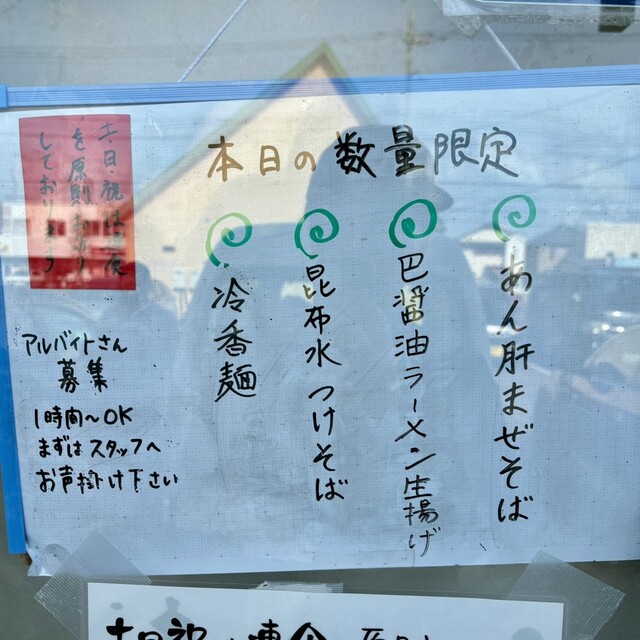 本日の数量限定
あん肝まぜそば
巴醤油ラーメン生揚げ
昆布水つけそば
冷香麺
土日祝は
を原則
しております
アルバイトさん
募集
1時間〜OK
まずはスタッフへ
お声掛け下さい
土日祝